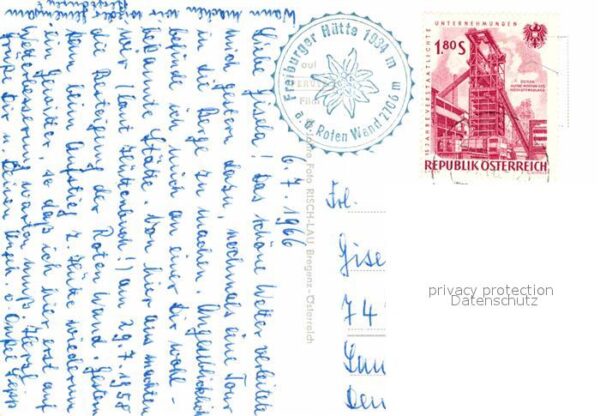 6.7.1966
Liebe Gisela! Das schöne Wetter verleitete
mich gestern dazu, nochmals eine Tour
in die Berge zu machen. Unglaublich
befand ich mich an einer dir wohl-
bekannte Stätte. Von hier aus machten
wir (laut Hüttenbuch!) am 29.7.1958
die Besteigung der Roten Wand. Gestern
beim Aufstieg z. Hütte wiederum
ein Gewitter, so daß ich hier erst auf
Wetterbesserung warten muß. Herzl.
Grüße u. deinen Angeh. v. Onkel Sepp
Wann machen wir wieder
Freiburger Hütte 1934 m
a. d. Roten Wand 2706 m
Foto RISCH-LAU, Bregenz-Österreich
Frl.
Gise
74
Den
15 JAHRE VERSTAATLICHTE
UNTERNEHMUNGEN
1.80 S
REPUBLIK ÖSTERREICH
privacy protection
Datenschutz